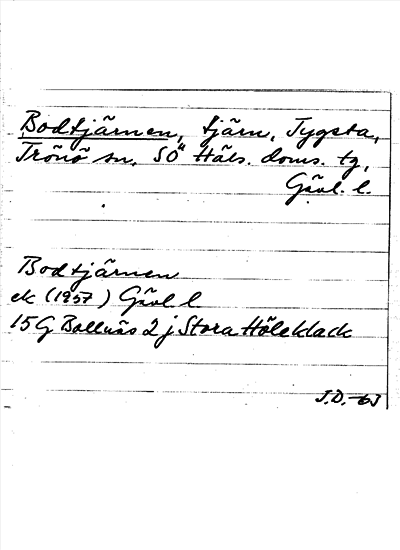 Bodtjärnen, tjärn, Tygsta,
Trönö sn. SÖ Häls. doms. tg,
Gävl. l.
Bodtjärnen
ek (1957) Gävl l
15G Bollnäs 2 j Stora Höleklack
J.D. -63